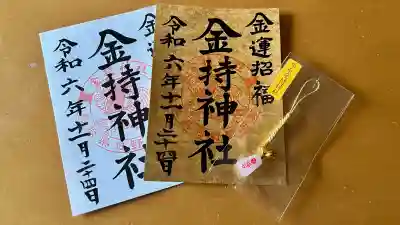 金運招福
金持神社
令和六年十一月二十四日
金運
金持神社
令和六年十一月二十四日